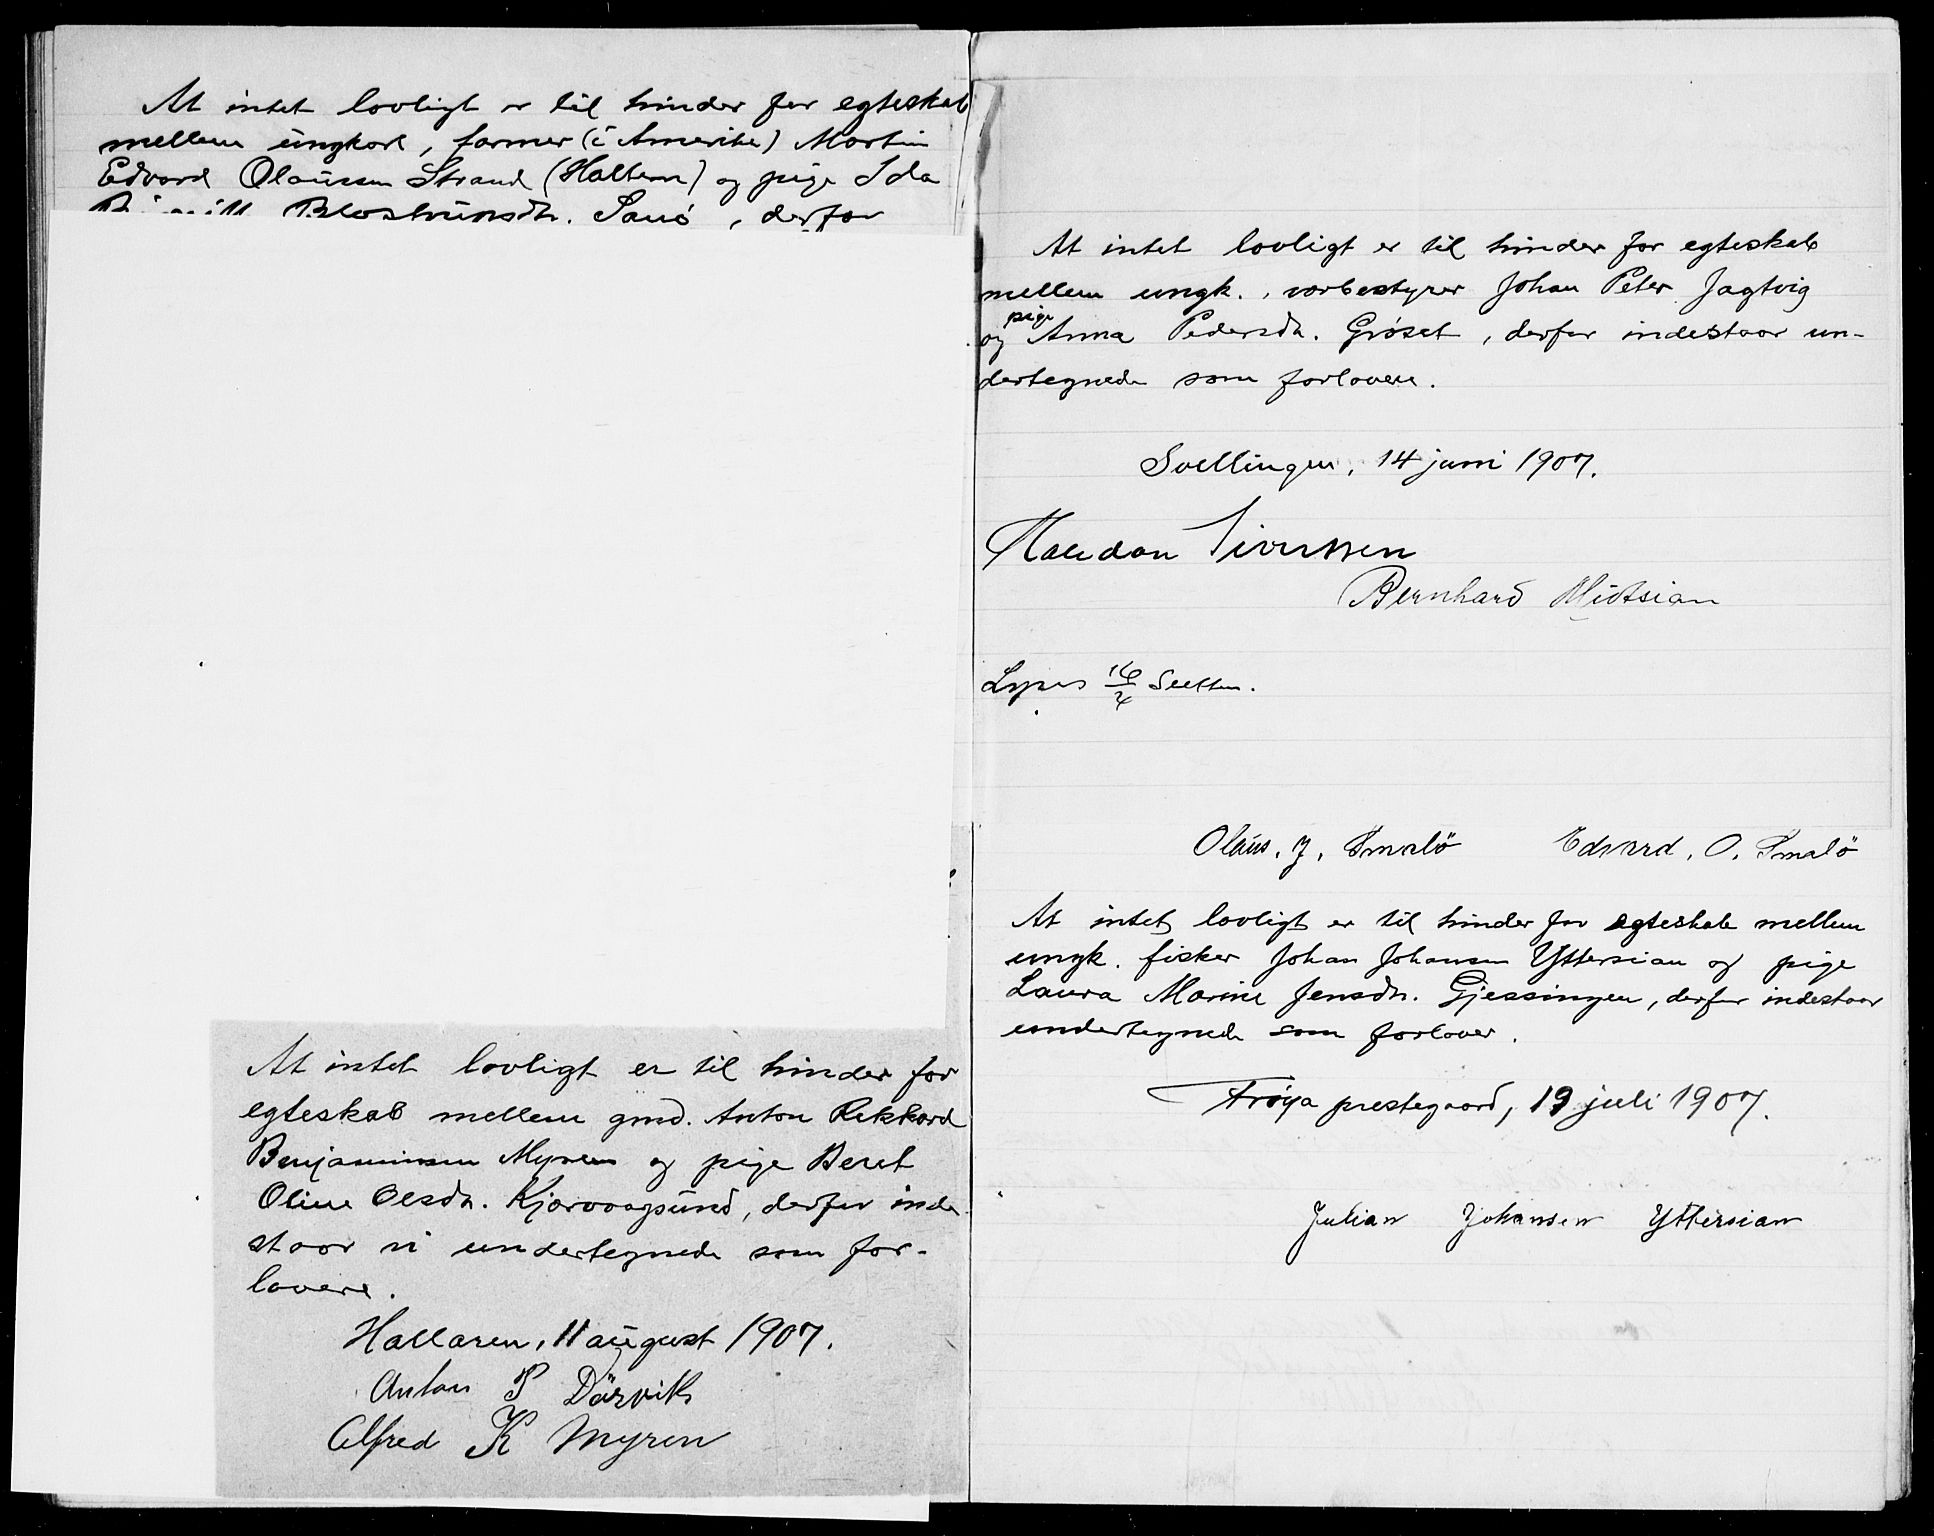 At intet lovligt er til hinder for egteskab
mellem ungkarl, farmer (i Amerika) Martin
Edvard Olaussen Strand (Haltern) og pige Ida
Sauø, derfor
At intet lovligt er til hinder for
egteskab mellem gmd. Anton Rikkard
Benjaminsen Myren og pige Beret
Oline Olsdr. Kjørvaagsund, derfor inde-
staar vi undertegnede som for-
lovere.
Hallaren, 11 august 1907.
Anton P Dørvik
Alfred K Myren
At intet lovligt er til hinder for egteskab
mellem ungk., værbestyrer Johan Peter Jagtvig
og pige Anna Pedersdr. Grøset, derfor indestaar un-
dertegnede som forlovere.
Svellingen, 14 juni 1907.
Haldan Sivertsen
Bernhard Midtsian
Lyses 16/6 Sletten.
Olaus. J. Smalö Edvard. O. Smalö
At intet lovligt er til hinder for egteskab mellem
ungk. fisker Johan Johansen Yttersian og pige
Laura Marine Jensdr. Gjessingen, derfor indestaar
undertegnede som forlover.
Frøya prestegaard, 19 juli 1907.
Julian Johansen Yttersian